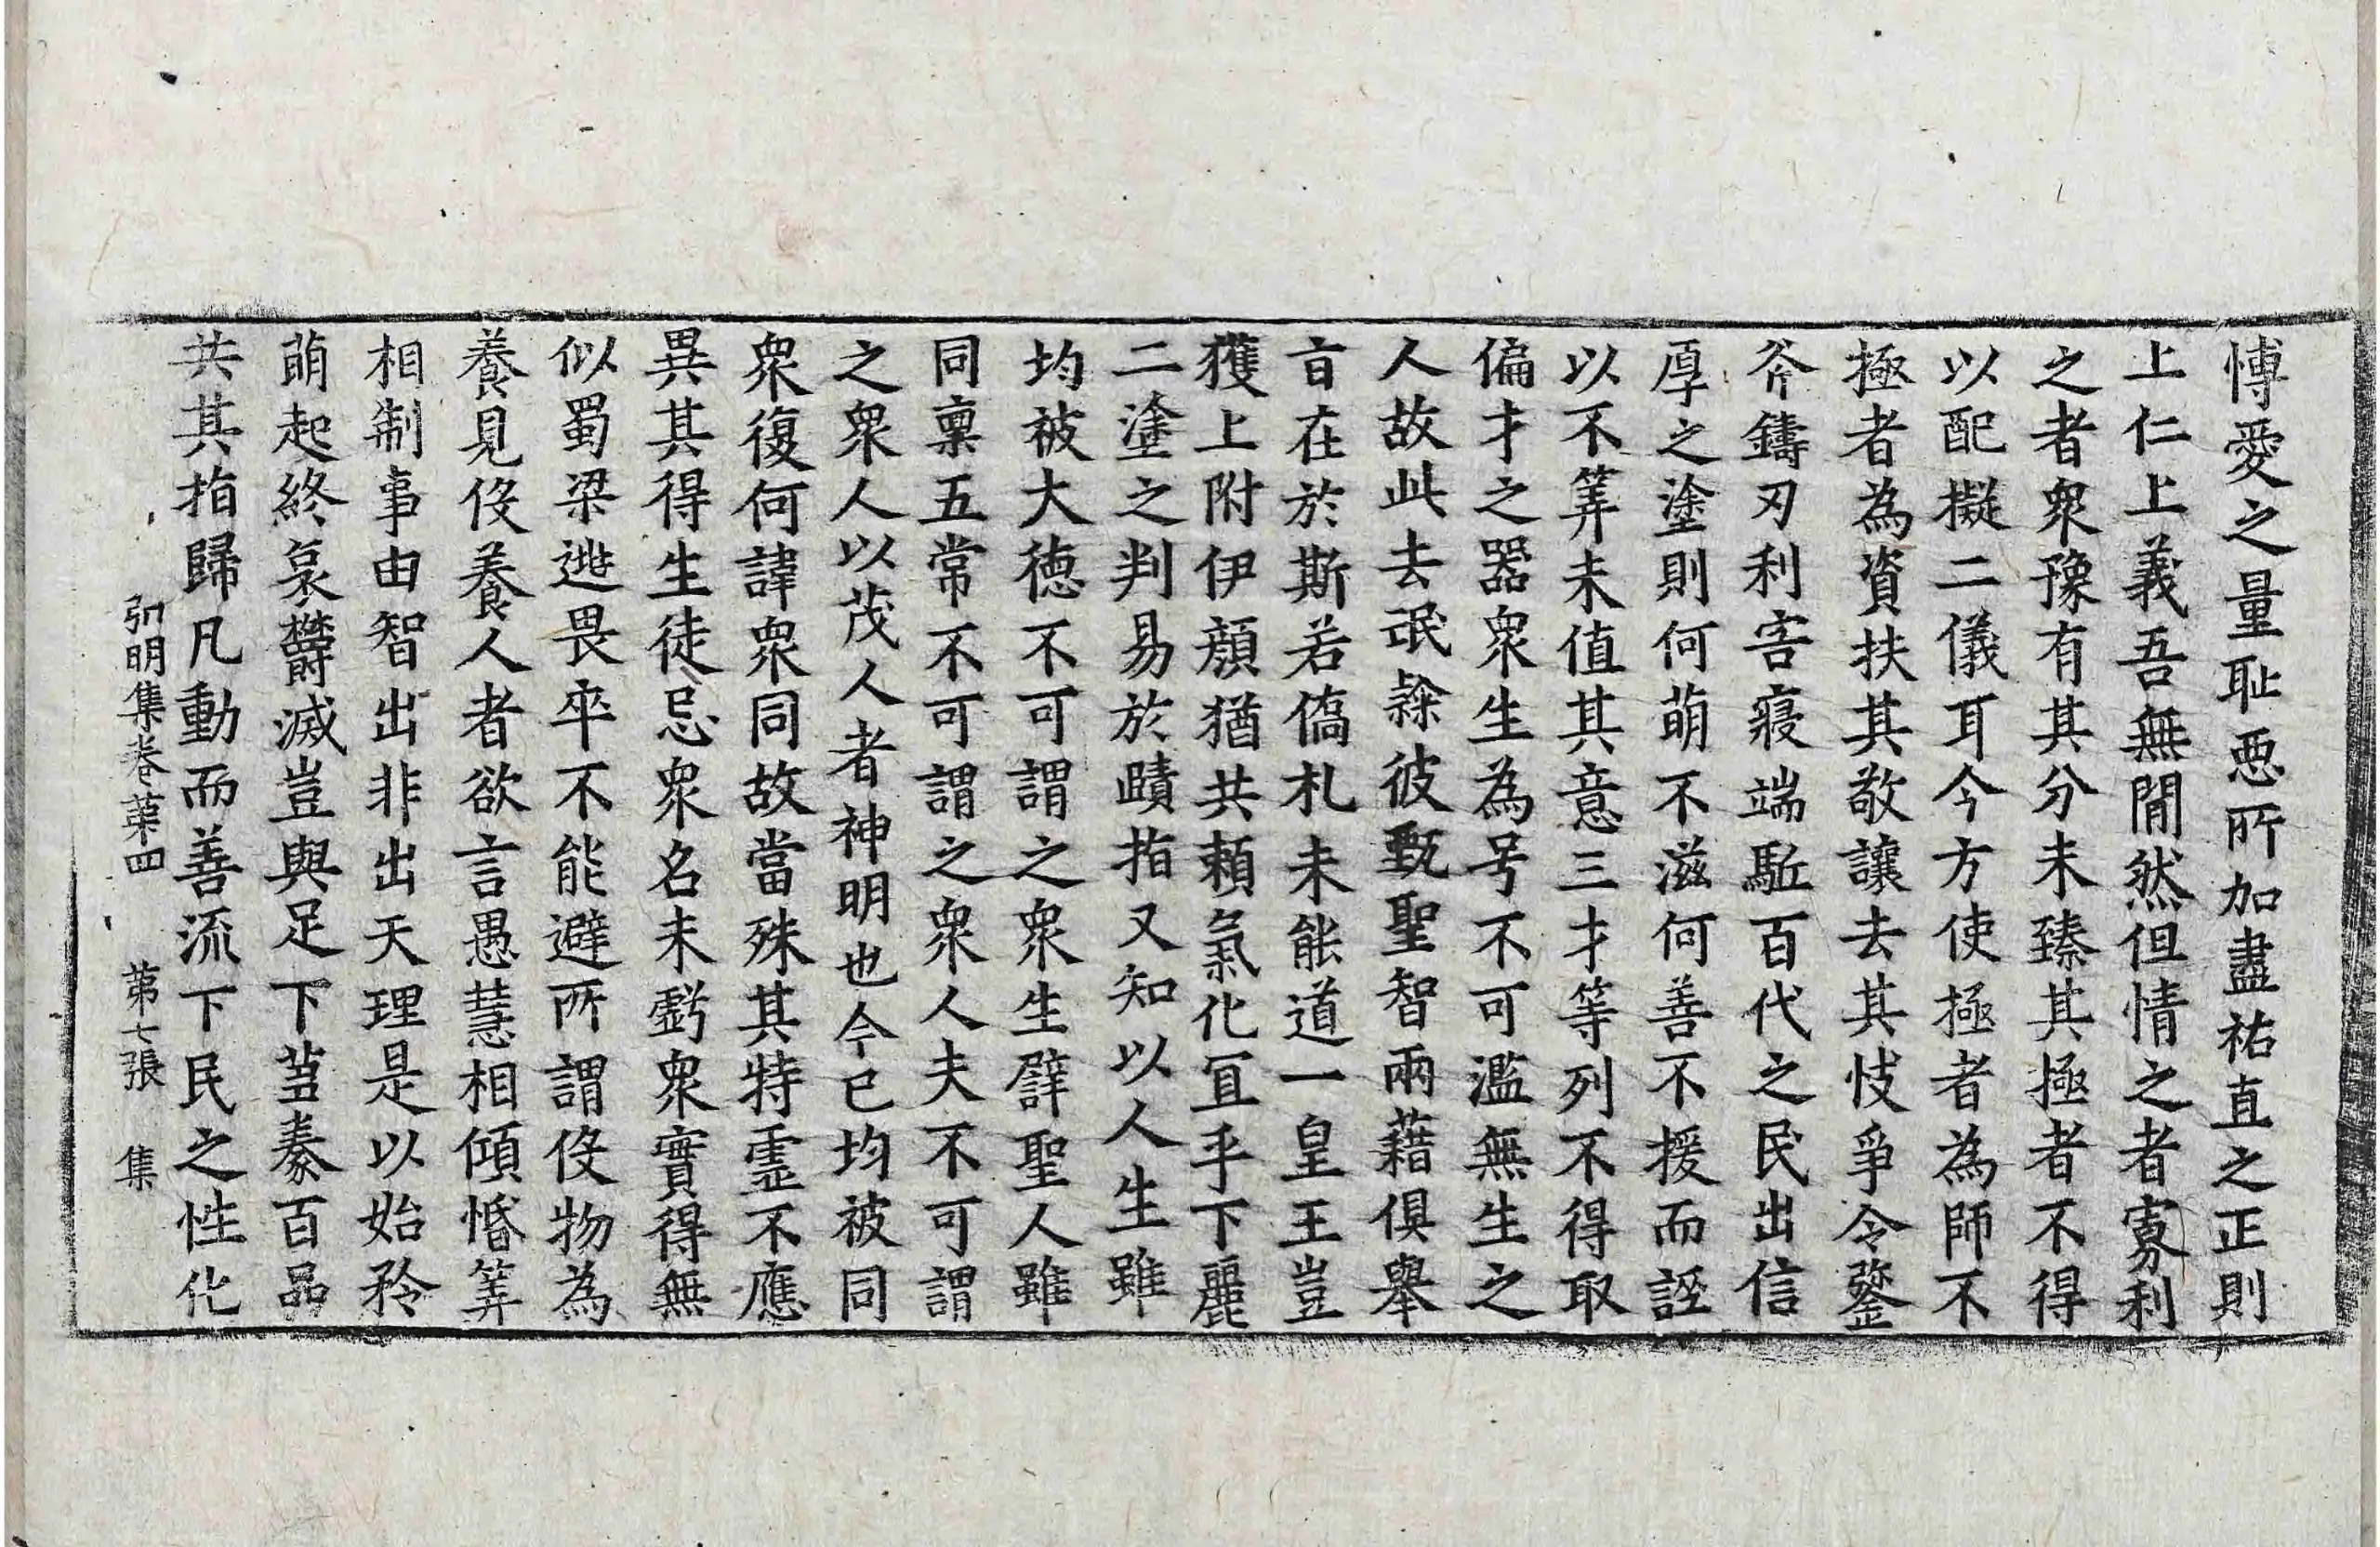 愽愛之量耻惡所加盡祐直之正則
上仁上義吾無閒然但情之者寡利
之者衆豫有其分未臻其極者不得
以配擬二儀耳今方使極者為師不
極者為資扶其敬讓去其忮爭令鍪
斧鑄刃利害寢端駈百代之民出信
厚之塗則何萌不滋何善不援而誣
以不筭未值其意三才等列不得取
偏才之器衆生為号不可濫無生之
人故此去氓𨽻彼甄聖智兩藉俱舉
旨在於斯若僑札未能道一皇王豈
獲上附伊顏猶共賴氣化宜乎下麗
二塗之判易於賾指又知以人生雖
均被大德不可謂之衆生譬聖人雖
同禀五常不可謂之衆人夫不可謂
之衆人以茂人者神明也今已均被同
衆復何諱衆同故當殊其特靈不應
異其得生徒忌衆名未虧衆實得無
似蜀梁逃畏卒不能避所謂役物為
養見役養人者欲言愚慧相傾惛筭
相制事由智出非出天理是以始矜
萌起終哀欝滅豈與足下芻豢百品
共其指歸凡動而善流下民之性化
弘明集卷苐四 苐七張 集